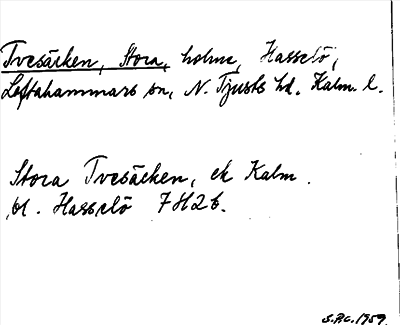 Tvesäcken, Stora, holme, Hasselö,
Loftahammars sn, N. Tjusts hd. Kalm. l.
Stora Tvesäcken, ek Kalm.
bl. Hasselö 7H2b.
S.P.C. 1959.